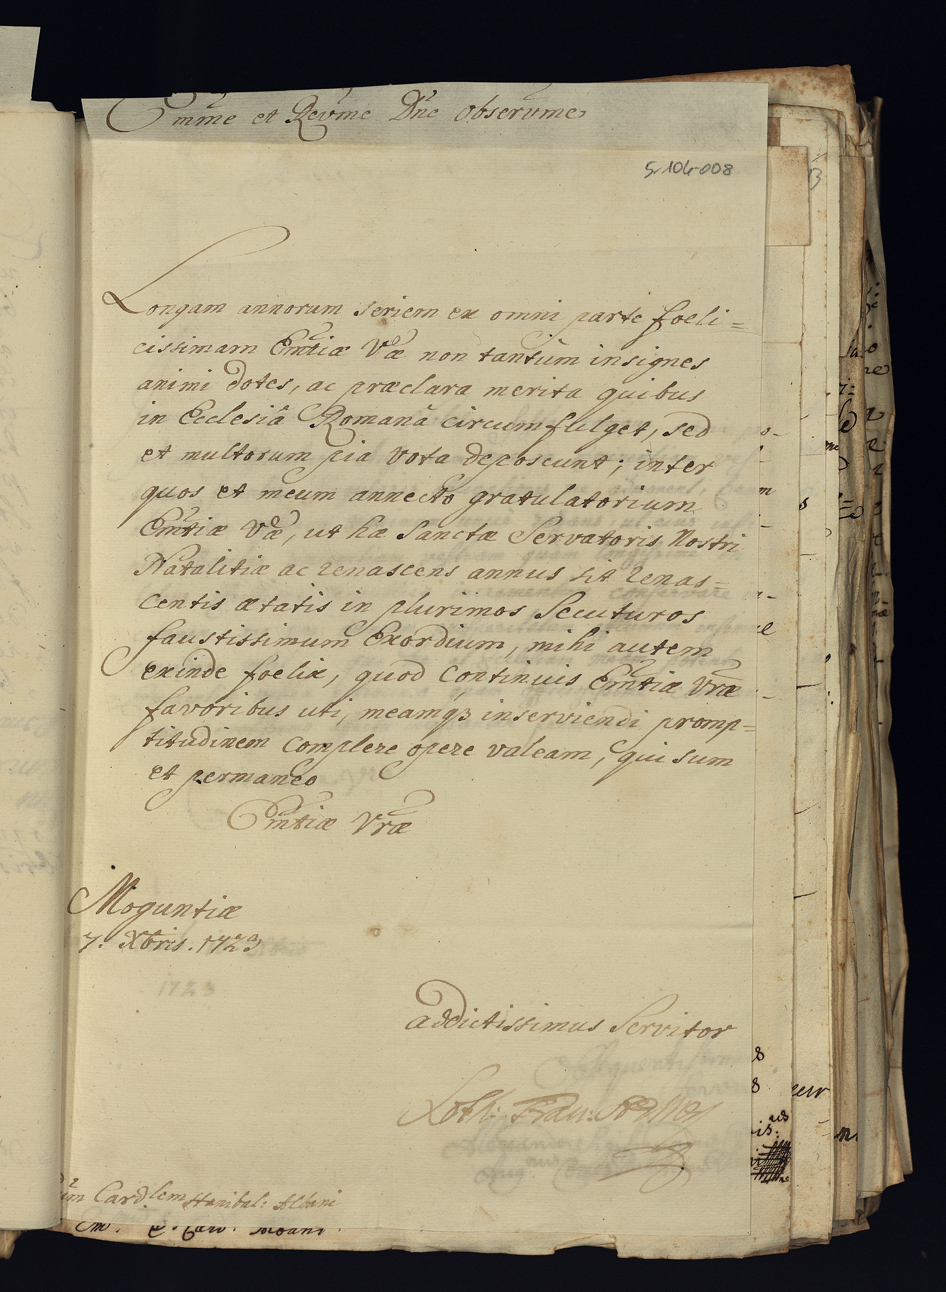 Emme et Revme Dne Observme
5-104-008
Longam annorum seriem ex omni parte foeli=
cissimam Emtiæ Væ non tantùm insignes
animi dotes, ac præclara merita quibus
in Ecclesiâ Romanâ circumfulget, sed
et multorum pia vota deposcunt; inter
quos et meum annecto gratulatorium
Emtiæ Væ, ut hæ Sanctæ Servatoris Nostri
Natalitiæ ac renascens annus sit renas=
centis ætatis in plurimos Secuturos
faustissimum Exordium, mihi autem
exinde foelix, quod Continuis Emtiæ Vræ
favoribus uti, meamq3 inserviendi promp=
titudinem complere opere valeam, qui sum
et permaneo
Emtiæ Vræ
Moguntiæ
7. Xbris. 1723
addictissimus Servitor
Loth: Fran:
Cardlem Hanibal: Albani
Albani